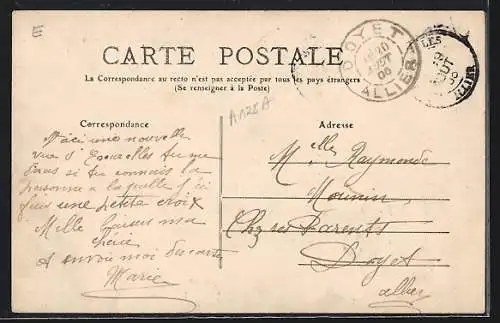 E
CARTE POSTALE
La Correspondance au recto n'est pas acceptée par tous les pays étrangers
(Se renseigner à la Poste)
DOYET
20
AOUT
06
ALLIER
LES
AOUT
06
ALLIER
A125A
Correspondance
Voici une nouvelle
vue d'Escualles tu me
diras si tu connais la
personne a la quelle j'ai
fais une petite croix
Mille baisers ma
chère
et envoi moi des cartes
Marie
Adresse
Melle Raymonde
Mounin
Chez ses Parents
Doyet
allier